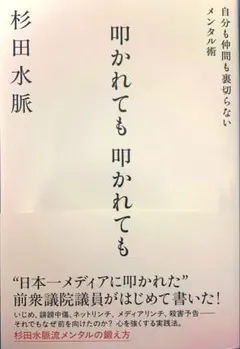 自分も仲間も裏切らない
メンタル術
叩かれても 叩かれても
杉田水脈
“日本一メディアに叩かれた”
前衆議院議員がはじめて書いた！
いじめ、誹謗中傷、ネットリンチ、メディアリンチ、殺害予告――
それでもなぜ前を向けたのか? 心を強くする実践法。
杉田水脈流メンタルの鍛え方